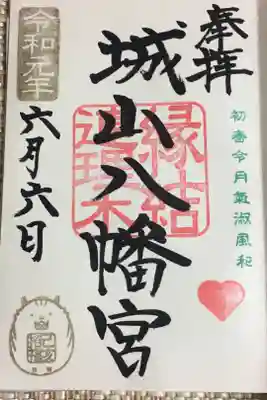 奉拝
初春令月氣淑風和
城山八幡宮
縁結
連理木
令和元年
六月六日